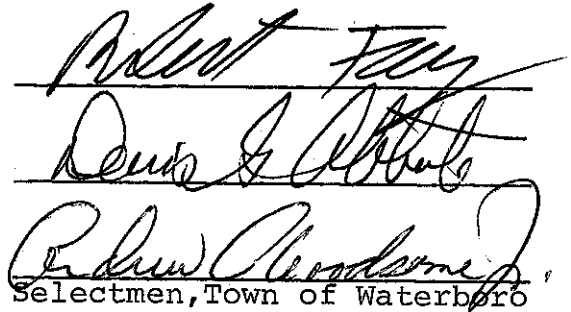 Robert Fay
Dennis G Abbott
Andrew Woodsome Jr.
Selectmen,Town of Waterboro